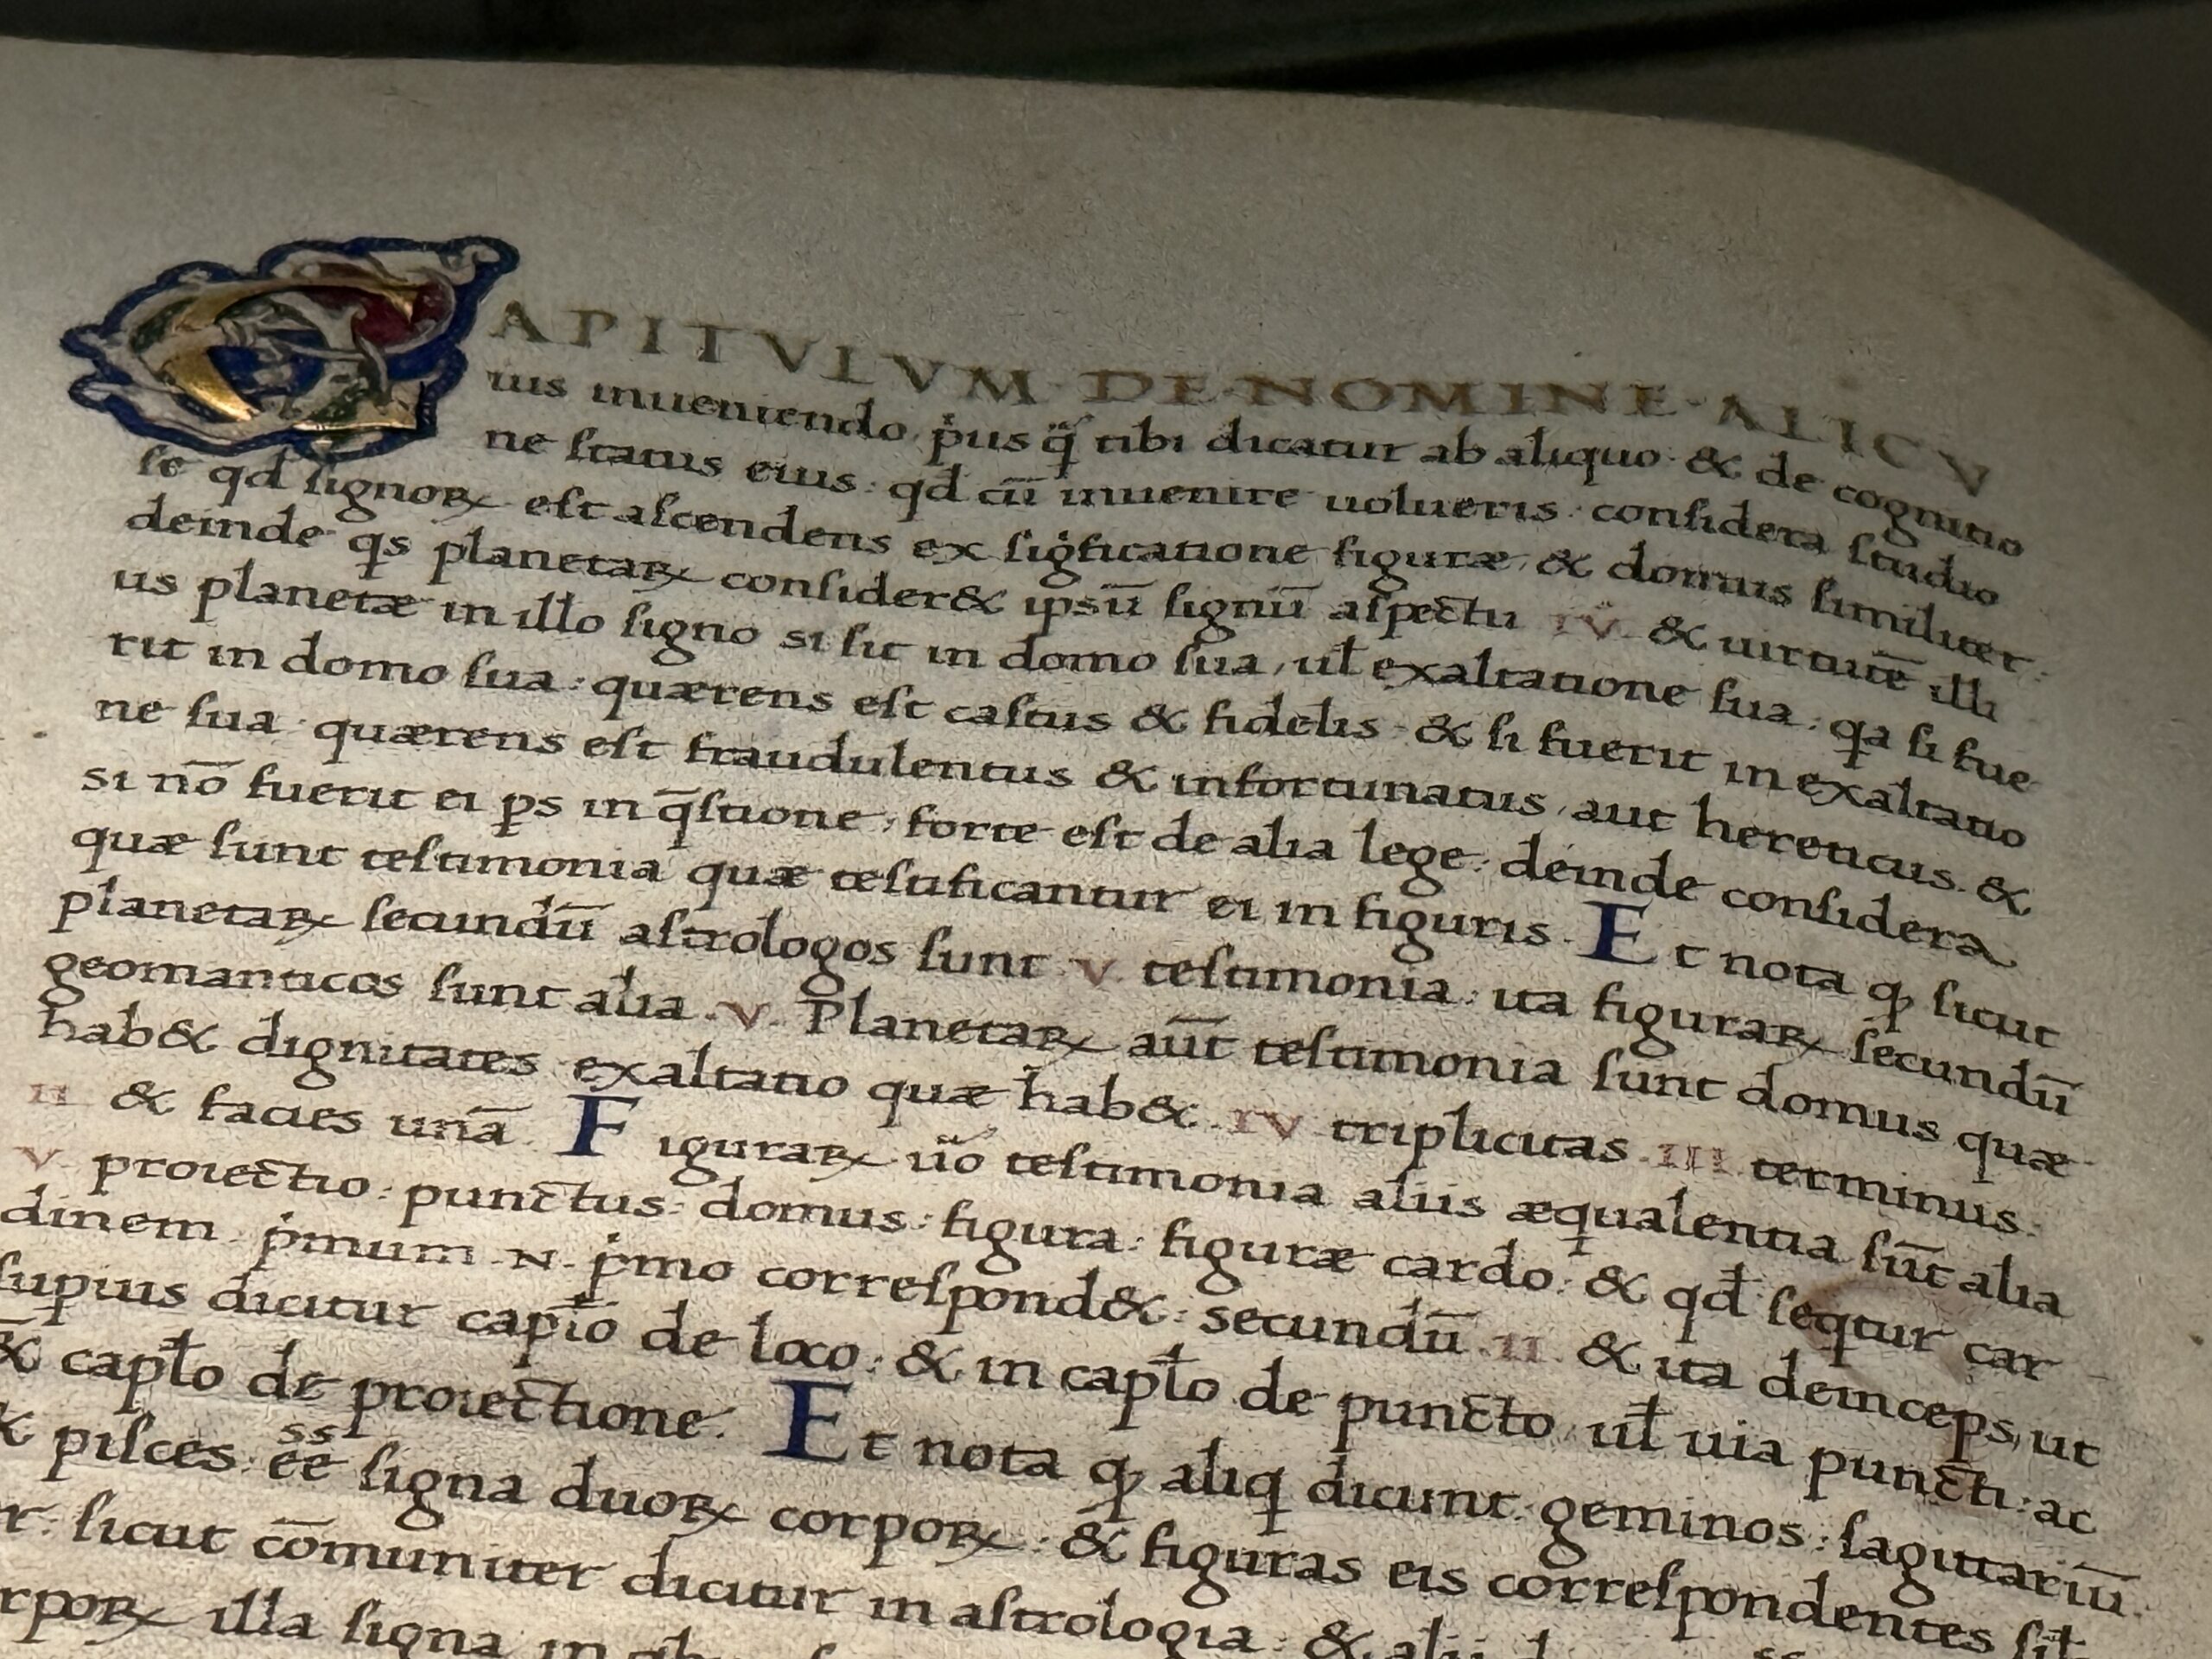 CAPITVLVM·DE·NOMINE·ALICV
ius inueniendo p̓us q̃ tibi dicatur ab aliquo & de cognitio
ne ſtatus eius: qđ cū inuenire uolueris: conſidera ſtudio
ſe qđ ſignoꝝ eſt aſcendens ex ſig̓ficatione figuræ, & domus ſimiliter:
deinde qͥs planetaꝝ conſider& ipsū ſignū aſpectu ·IV· & uirtutē illi
us planetæ in illo ſigno si ſit in domo ſua, uł exaltatione ſua: qa ſi fue
rit in domo ſua: quærens eſt caſtus & fidelis· & ſi fuerit in exaltatio
ne ſua· quærens eſt fraudulentus & infortunatus, aut hereticus. &
si nō fuerit ei ꝑs in q̄ſtione, forte eſt de alia lege: deinde conſidera
quæ ſunt teſtimonia quæ teſtificantur ei in figuris. Et nota ꝙ ſicut
planetaꝝ ſecundū aſtrologos ſunt ·V· teſtimonia: ita figuraꝝ ſecundū
geomanticos ſunt alia ·V· Planetaꝝ aūt teſtimonia ſunt domus quæ
hab& dignitates exaltatio quæ hab& ·IV· triplicitas ·III· terminus·
II· & facies unā· Figuraꝝ ūo teſtimonia aliis æqualentia ſūt alia
V· proiectio: punctus: domus: figura: figuræ cardo: & qđ ſeqtur car
dinem· p̓mum ·N· p̓mo correſpond&: secundū ·II· & ita deinceps, ut
ſupius dicitur capīo de loco: & in capło de puncto, uł uia puncti: ac
& capło de proiectione. Et nota ꝙ aliq dicunt: geminos: ſagittariū·
& piſces: eẽ ſigna duoꝝ corpoꝝ: & figuras eis correſpondentes ſił
r: ſicut cōmuniter dicitur in aſtrologia: &
rpoꝝ illa ſigna in